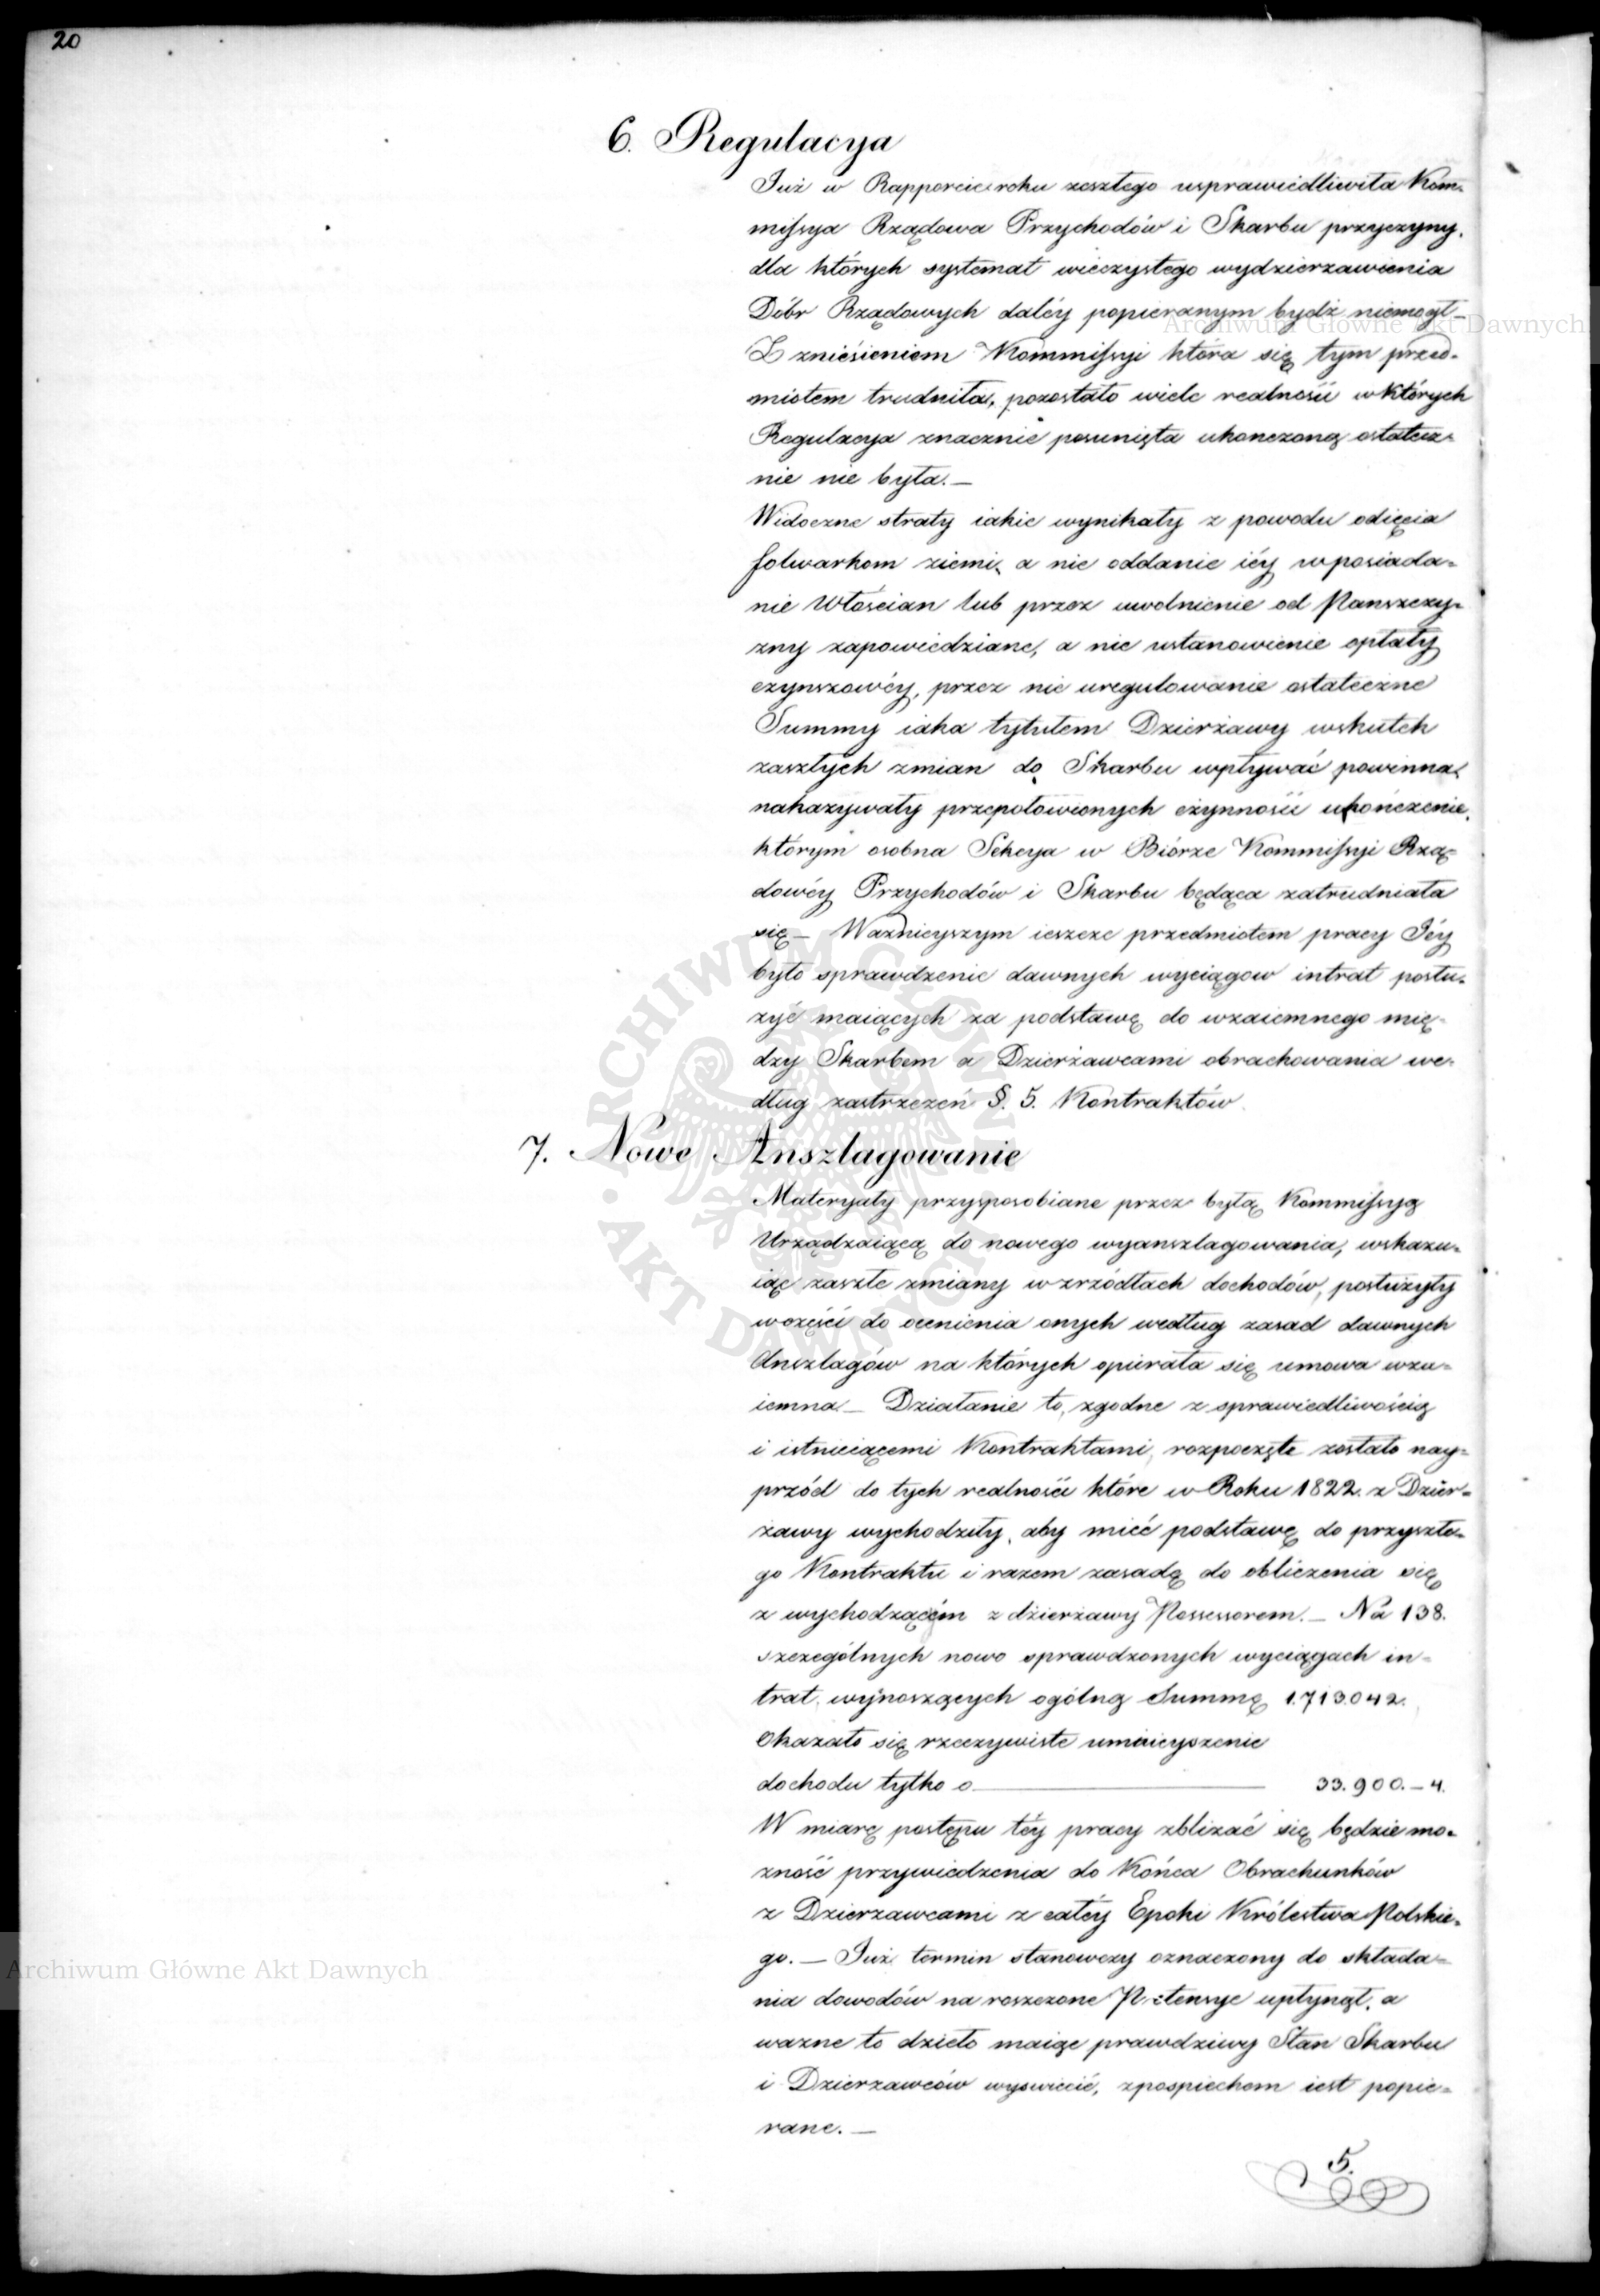 20
6. Regulacya
Już w Rapporcie roku zeszłego usprawiedliwiła Kom-
missya Rządowa Przychodów i Skarbu przyczyny,
dla których systemat wieczystego wydzierzawienia
Dóbr Rządowych daléy popieranym bydź niemogł –
Z zniesieniem Kommissyi która się tym przed-
miotem trudniła, pozostało wiele realności w których
Regulacya znacznie posunięta ukonczoną ostatecz-
nie nie była. –
Widoczne straty iakie wynikały z powodu odięcia
folwarkom ziemi, a nie oddanie iéy w posiada-
nie Włościan lub przez uwolnienie od Panszczy-
zny zapowiedziane, a nie ustanowienie opłaty
czynszowéy, przez nie uregulowanie ostateczne
Summy iaka tytułem Dzierżawy wskutek
zaszłych zmian do Skarbu wpływać powinna,
nakazywały przepołowionych czynności ukończenie,
którym osobna Sekcya w Biórze Kommissyi Rzą-
dowéy Przychodów i Skarbu będąca zatrudniała
się – Ważnieyszym ieszcze przedmiotem pracy Iéy
było sprawdzenie dawnych wyciągow intrat posłu-
żyć maiących za podstawę do wzaiemnego mię-
dzy Skarbem a Dzierżawcami obrachowania we-
dług zastrzezeń §. 5. Kontraktów.
7. Nowe Anszlagowanie
Materyały przysposobiane przez byłą Kommissyą
Urządzaiącą do nowego wyanszlagowania, wskazu-
iąc zaszłe zmiany w zrzódłach dochodów, posłużyły
w części do ocenienia onych według zasad dawnych
Anszlagów na których opierała się umowa wza-
iemna. – Działanie to, zgodne z sprawiedliwością
i istnieiącemi Kontraktami, rozpoczęte zostało nay-
przód do tych realności które w Roku 1822. z Dzier-
żawy wychodziły, aby mieć podstawę do przyszłe-
go Kontraktu i razem zasadę do obliczenia się
z wychodzącém z dzierżawy Possessorem. – Na 138.
szczególnych nowo sprawdzonych wyciągach in-
trat, wynoszących ogólną Summę 1.713.042.
Okazało się rzeczywiste umnieyszenie
dochodu tylko o 33.900. – 4.
W miarę postępu téy pracy zbliżać się będzie mo-
żność przywiedzenia do Końca Obrachunków
z Dzierzawcami z całéy Epoki Królestwa Polskie-
go. – Już termin stanowczy oznaczony do składa-
nia dowodów na roszczone Pretensye upłynął, a
ważne to dzieło maiące prawdziwy Stan Skarbu
i Dzierzawców wyswiecić, z pospiechem iest popie-
rane. –
5.
Archiwum Główne Akt Dawnych
Archiwum Główne Akt Dawnych
ARCHIWUM GŁÓWNE • AKT DAWNYCH •